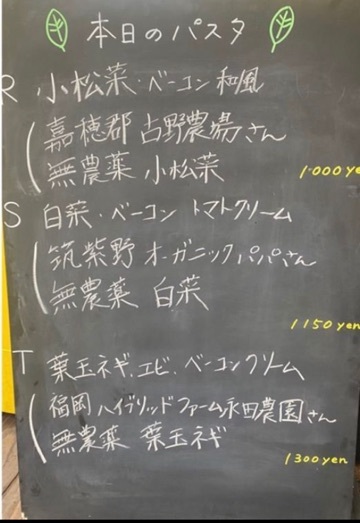 本日のパスタ
R 小松菜・ベーコン 和風
嘉穂郡 占野農場さん
無農薬 小松菜
1.000 ye
S 白菜・ベーコン トマトクリーム
筑紫野 オーガニックパパさん
無農薬 白菜
1150 yen
T 葉玉ネギ、エビ、ベーコンクリーム
福岡 ハイブリッドファーム永田農園さん
無農薬 葉玉ネギ
1300 yen